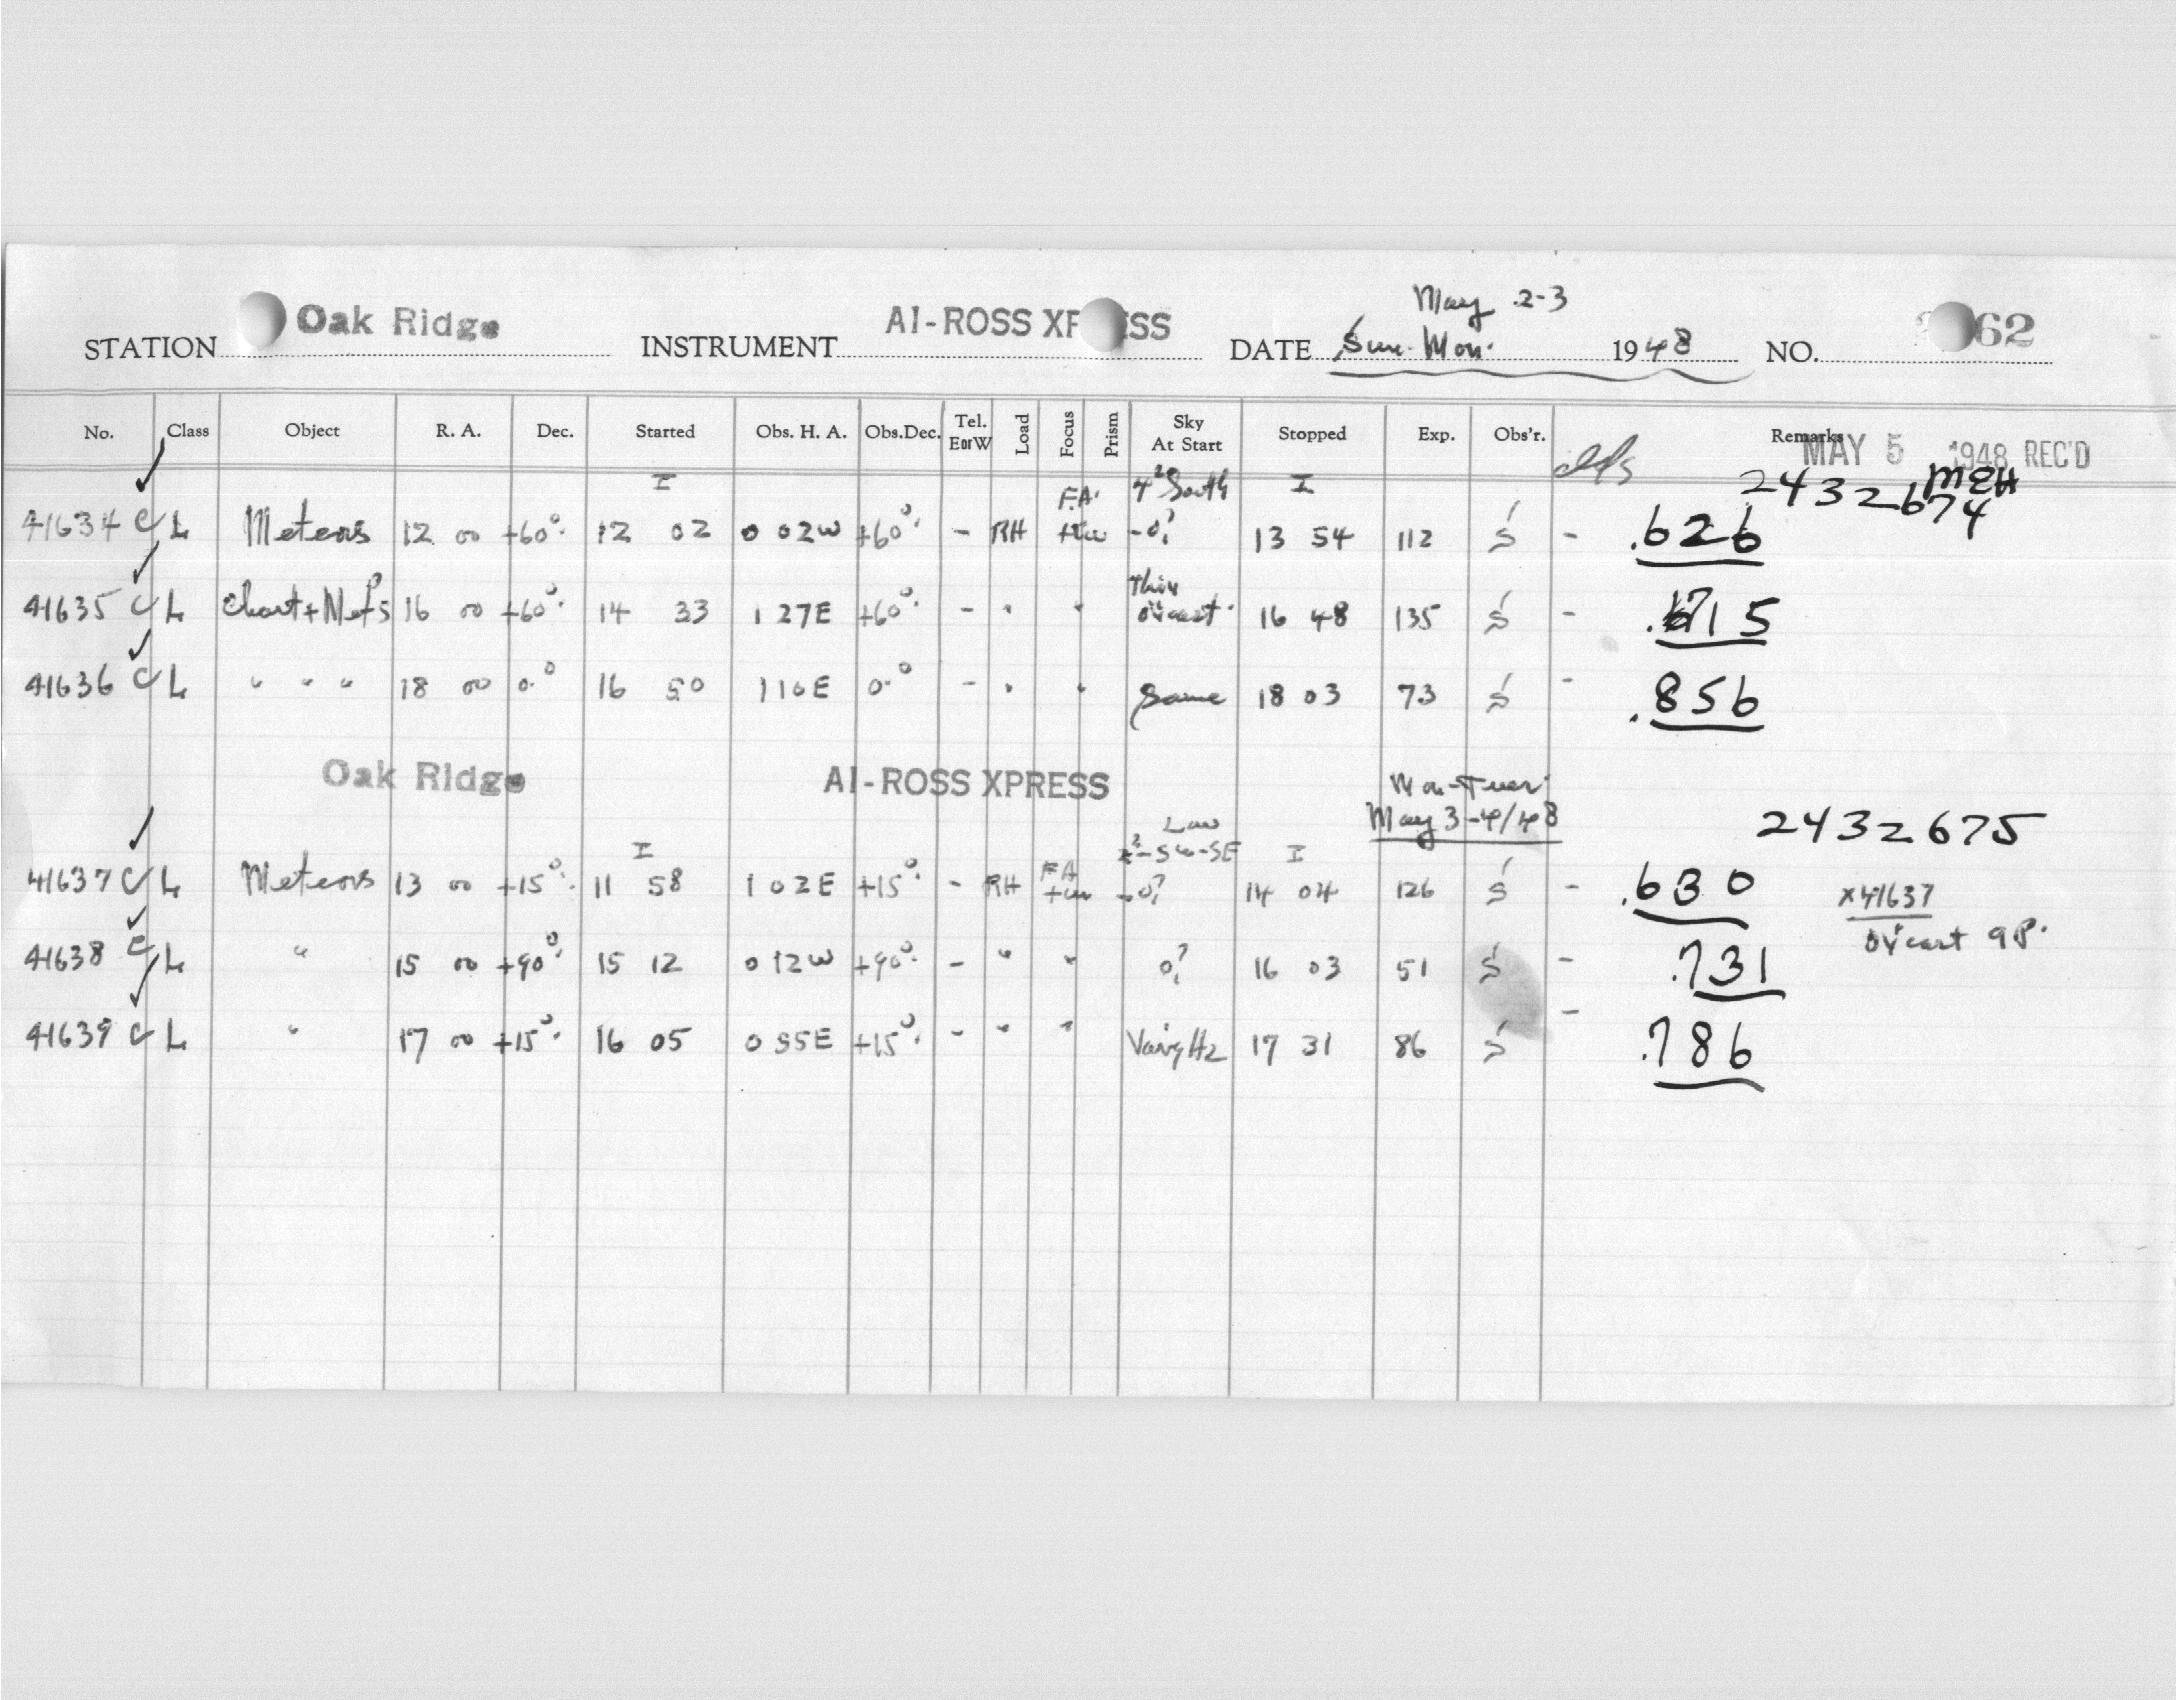 May 2-3
STATION Oak Ridge INSTRUMENT AI-ROSS XPRESS DATE Sun. Mon. 1948 NO. 62
No. Class Object R. A. Dec. Started Obs. H. A. Obs.Dec. Tel. E or W Load Focus Prism Sky At Start Stopped Exp. Obs'r. Remarks
MAY 5 1948 REC'D
MEH
I F.A. South I 2432674
41634 C L Meteors 12 00 +60° 12 02 0 02W +60° - RH -0? 13 54 112 S - .626
Thin
41635 C L Chart + Met's 16 00 +60° 14 33 1 27E +60° - " " ov'cast 16 48 135 S - .715
41636 C L " " " 18 00 0° 16 50 1 10E 0° - " " Same 18 03 73 S - .856
Oak Ridge AI-ROSS XPRESS Mon-Tues
May 3-4/48 2432675
Low
I FA SW-SE I
41637 C L Meteors 13 00 +15° 11 58 1 02E +15° - RH -0? 14 04 126 S - .630 x41637
41638 C L " 15 00 +90° 15 12 0 12W +90° - " " 0? 16 03 51 S - .731 ov'cast 9P.
41639 C L " 17 00 +15° 16 05 0 55E +15° - " " Var'g Hz 17 31 86 S - .786